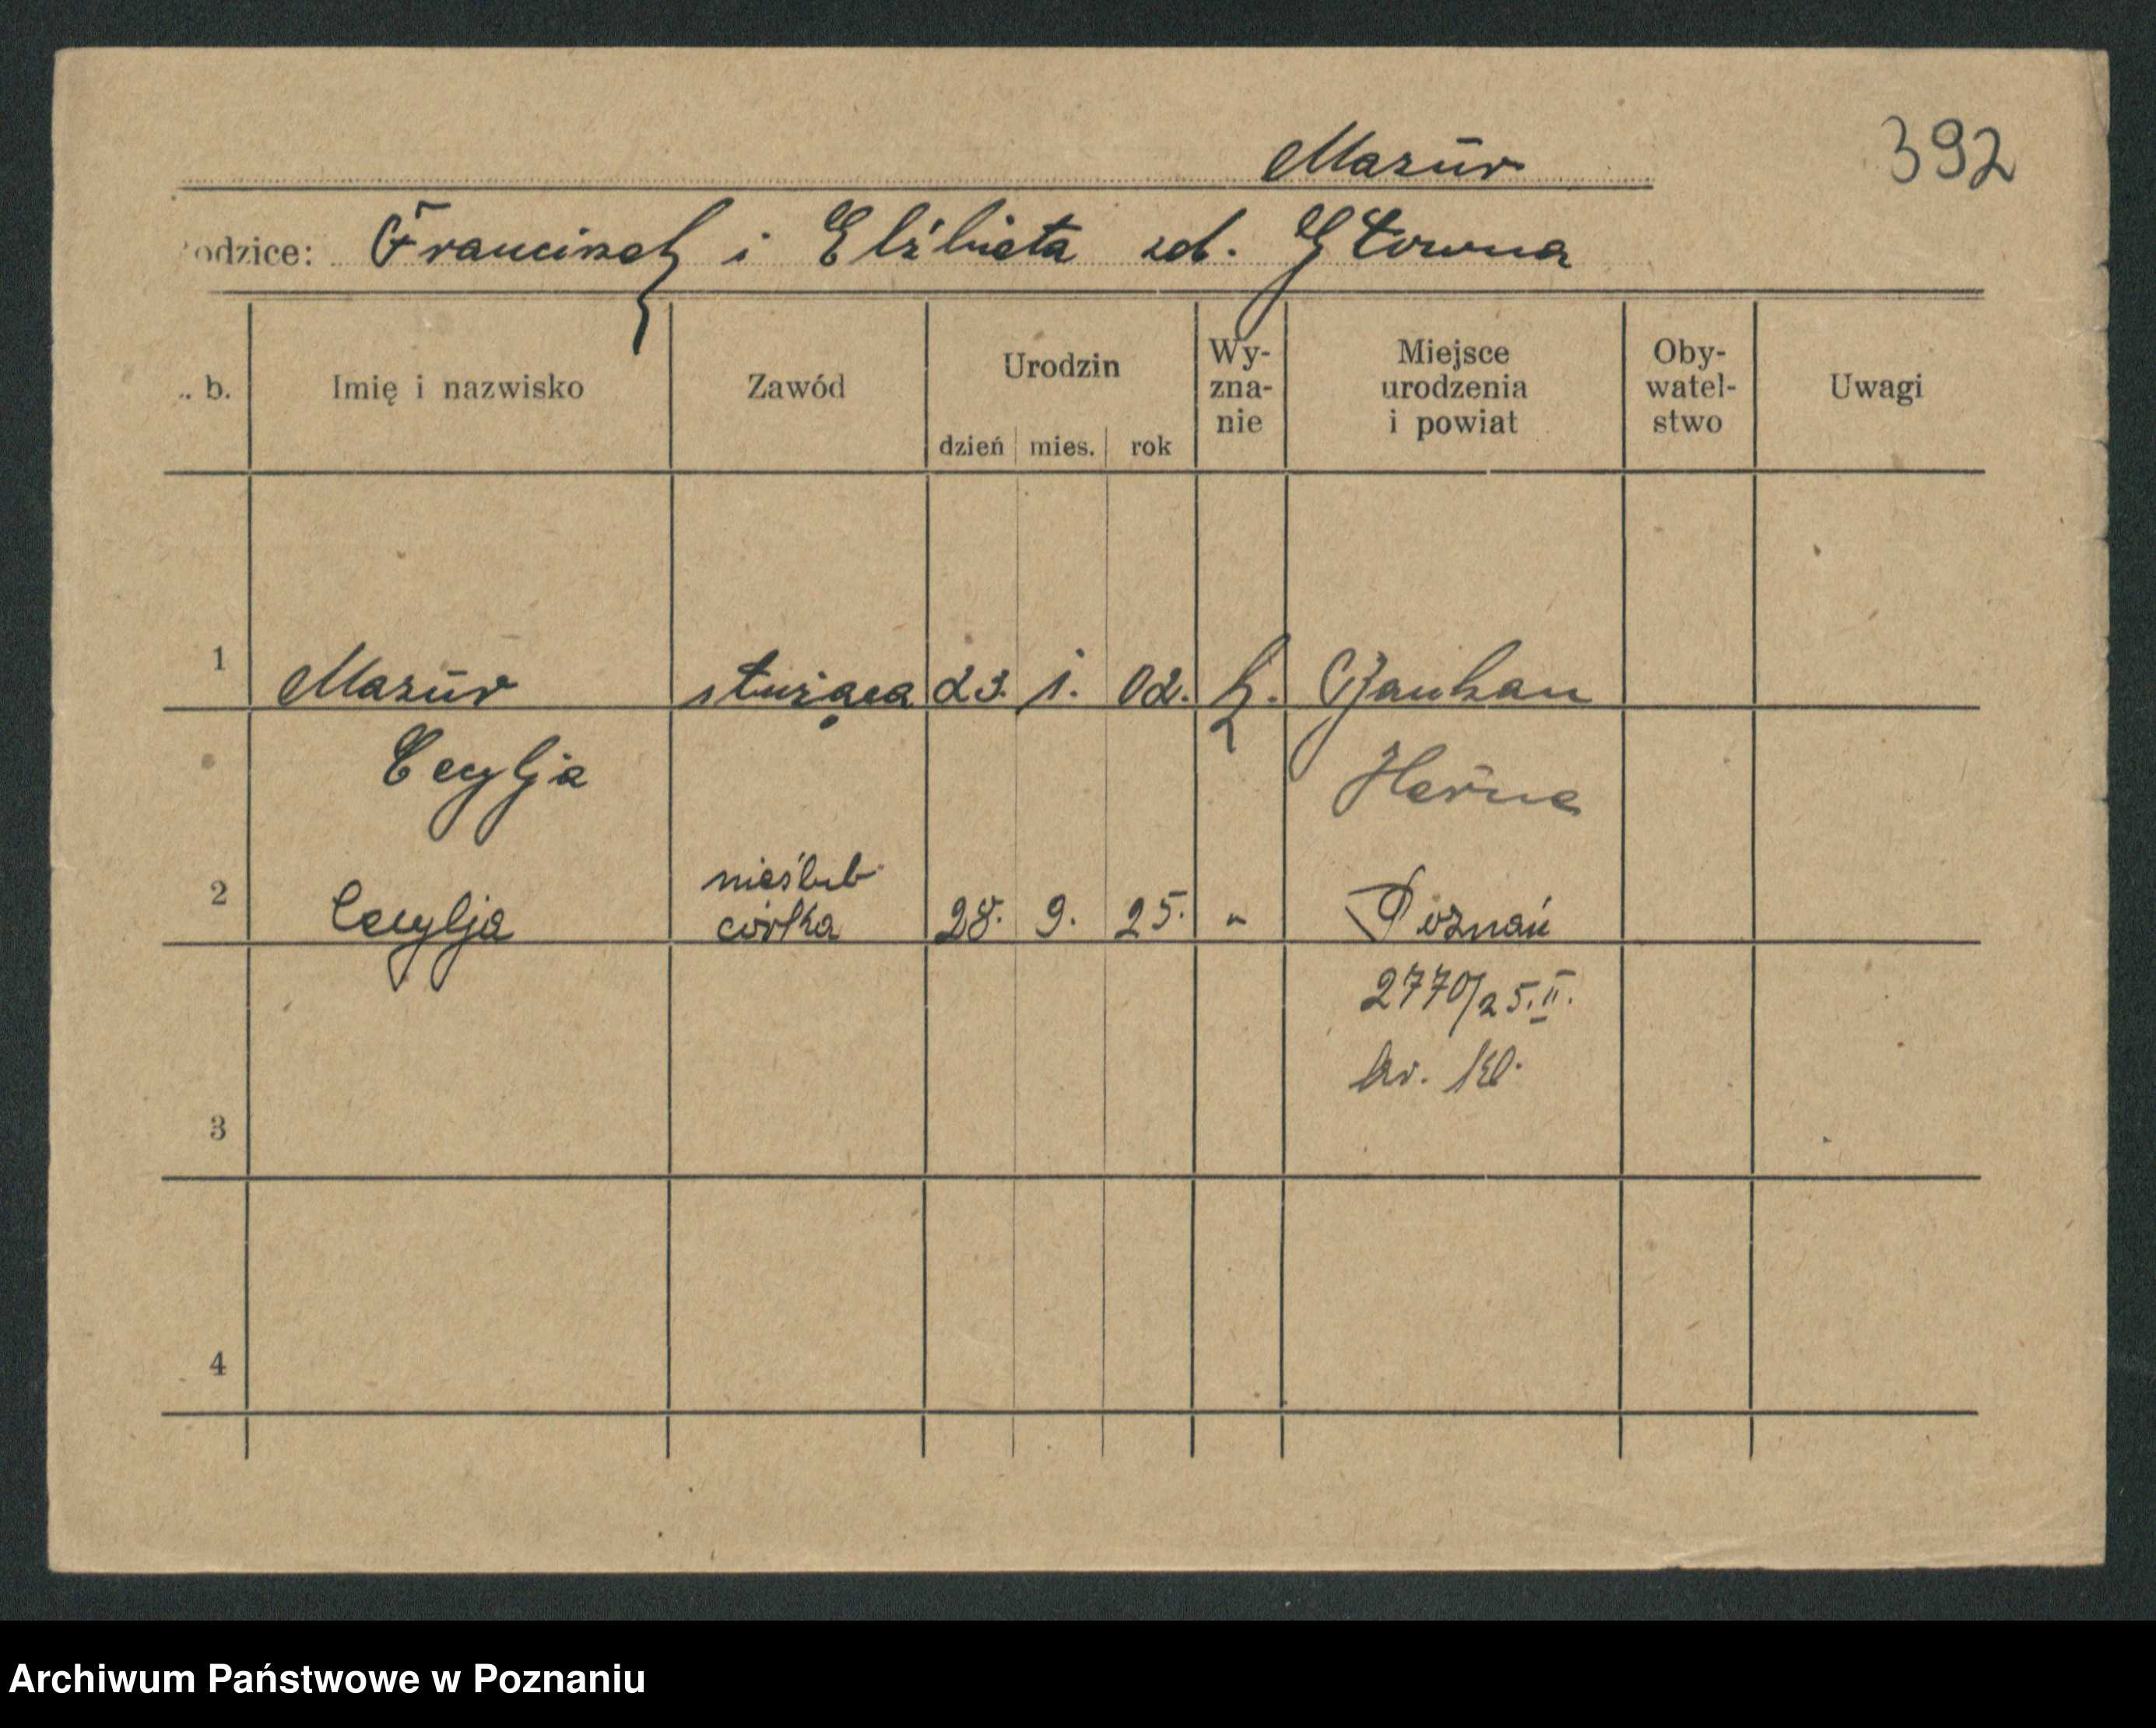 392
Mazur
odzice: Franciszek i Elżbieta zd. Głowna
. b. Imię i nazwisko Zawód Urodzin dzień mies. rok Wy-zna-nie Miejsce urodzenia i powiat Oby-watel-stwo Uwagi
1 Mazur służąca 23. 1. 02. k. Baukau
Cecylja Herne
nieślub
2 Cecylja córka 28. 9. 25. " Poznań
2770/25.II.
3
4
Archiwum Państwowe w Poznaniu